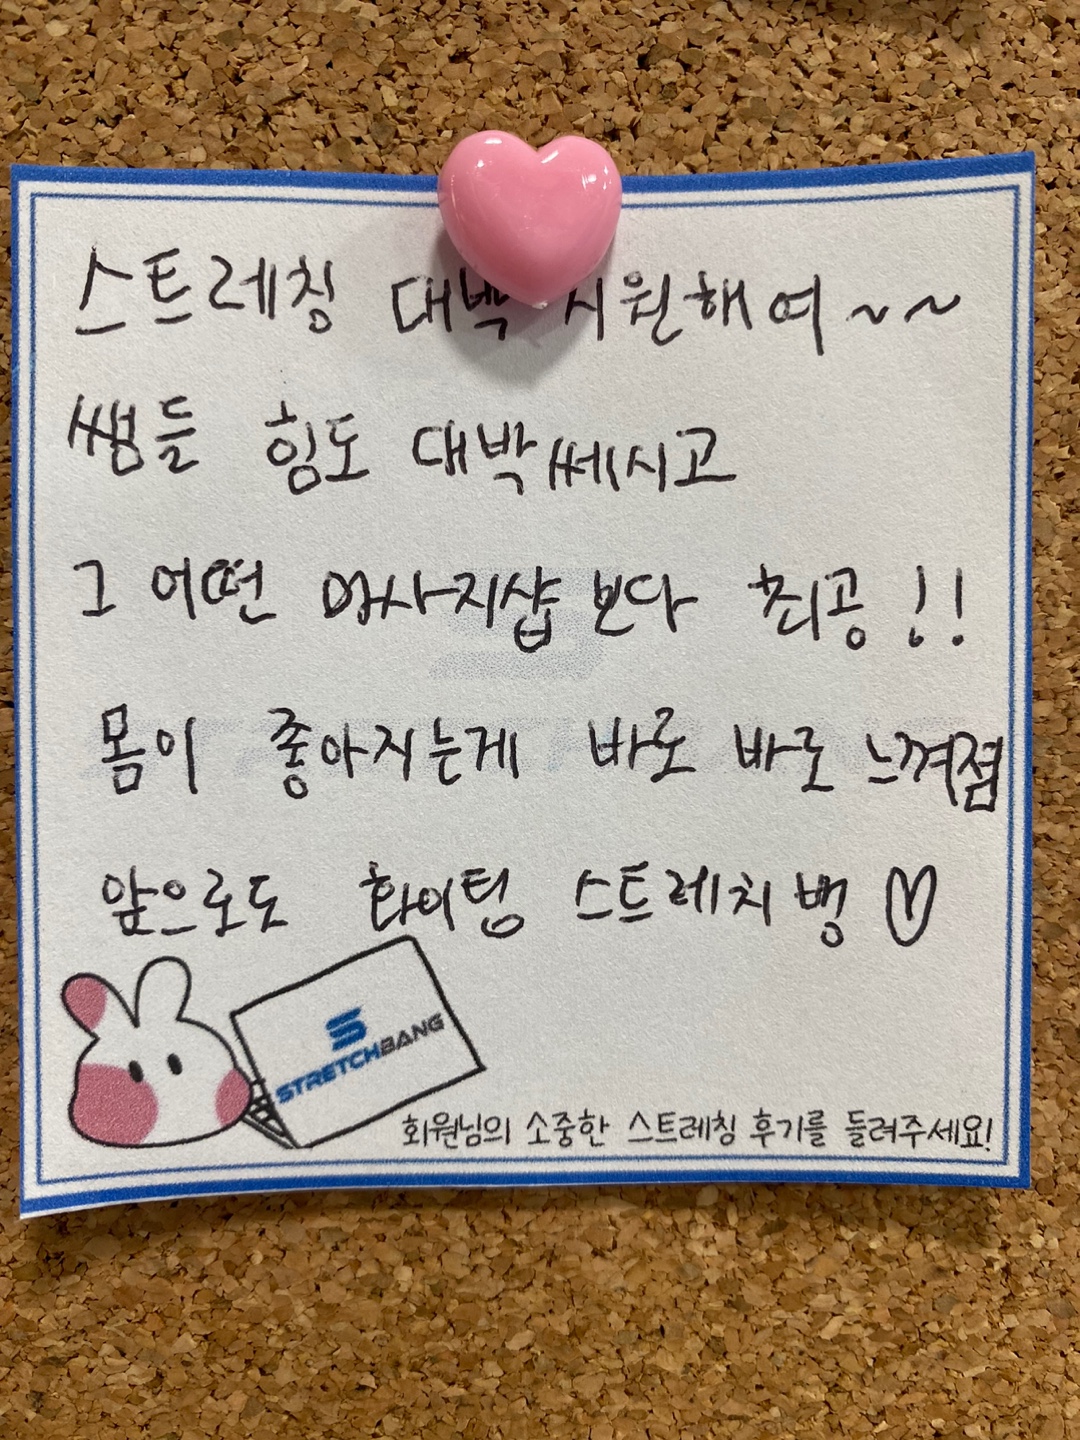 스트레칭 대박 시원해여~~
쌤들 힘도 대박 쎄시고
그 어떤 마사지샵 보다 최공!!
몸이 좋아지는게 바로 바로 느껴졈
앞으로도 화이텅 스트레치뱅♡
STRETCHBANG
회원님의 소중한 스트레칭 후기를 들려주세요!